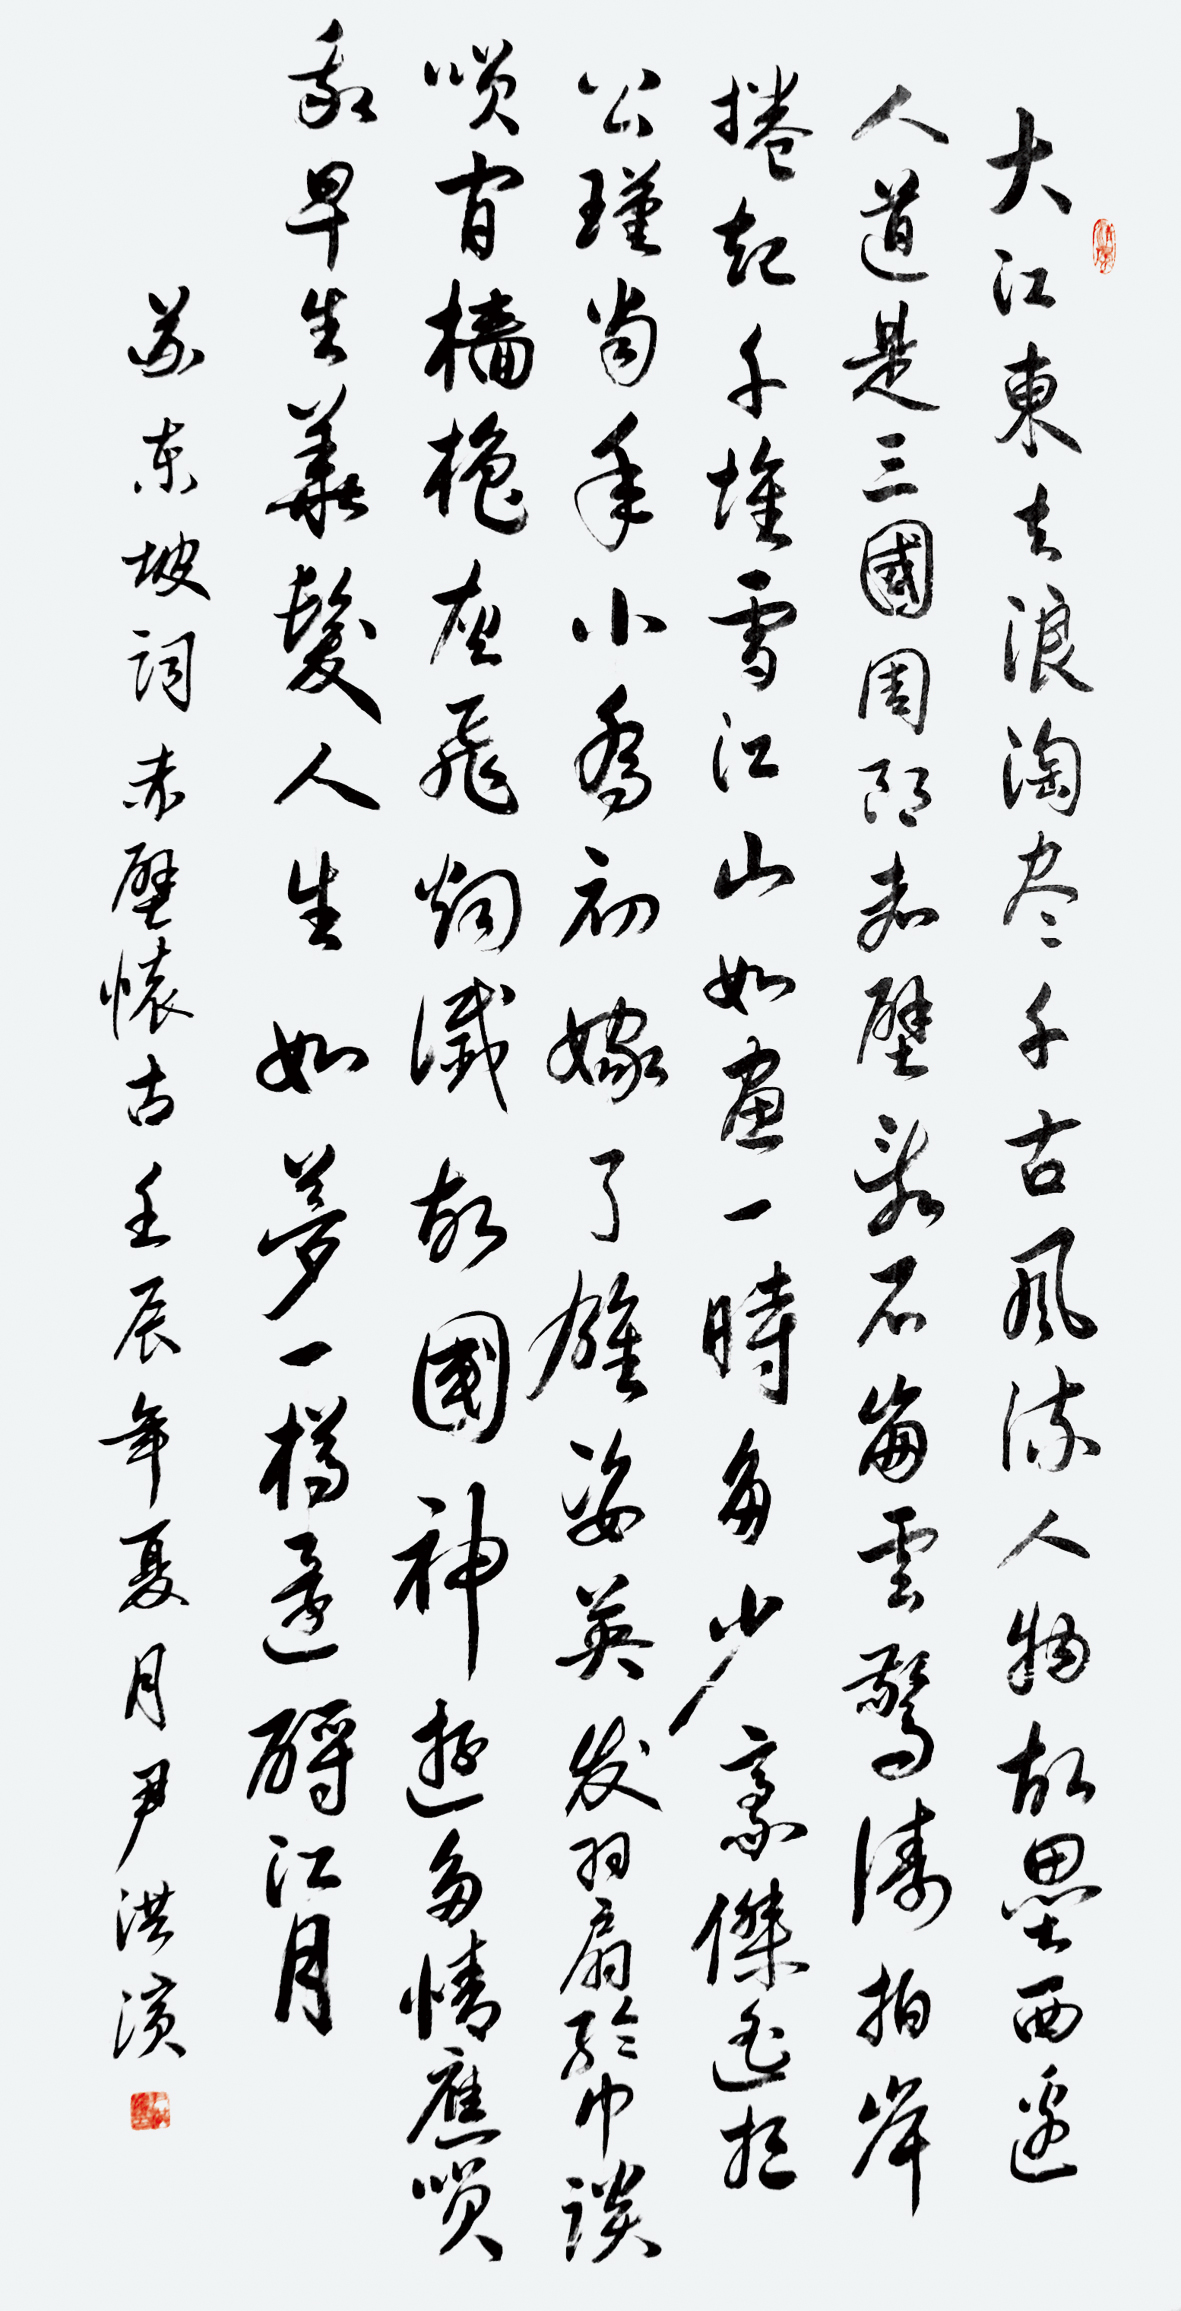 大江東去浪淘尽千古風流人物故壘西邊
人道是三國周郎赤壁乱石崩雲驚濤拍岸
捲起千堆雪江山如畫一時多少豪傑遙想
公瑾當年小喬初嫁了雄姿英发羽扇綸巾談
笑间檣櫓灰飛烟滅故國神遊多情應笑
我早生華髮人生如夢一樽還酹江月
苏东坡词赤壁懷古壬辰年夏月尹洪濱